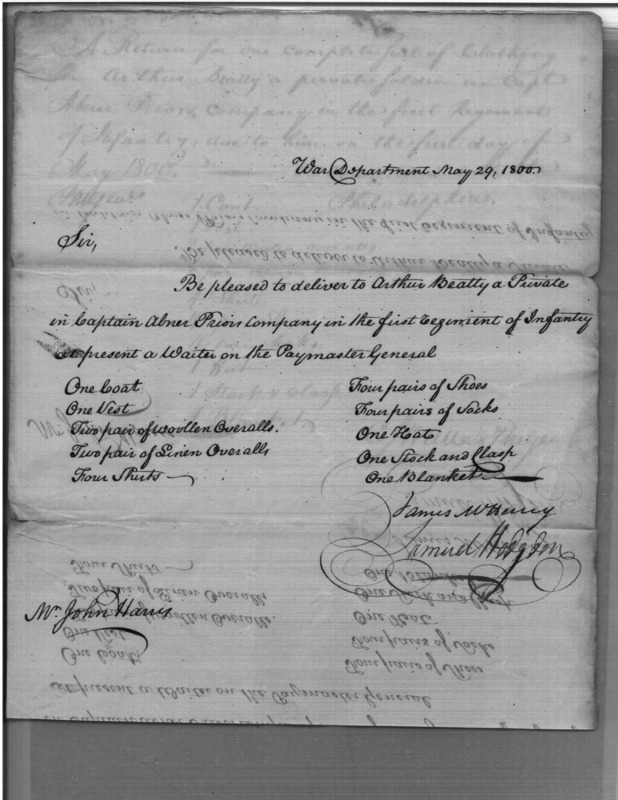 War Department May 29, 1800.
Sir,
Be pleased to deliver to Arthur Beatty a Private
in Captain Abner Priors Company in the first Regiment of Infantry
at present a Waiter on the Paymaster General
One Coat
One Vest
Two pair of Woollen Overalls.
Two pair of Linen Overalls
Four Shirts
Four pairs of Shoes
Four pairs of Socks
One Hat
One Stock and Clasp
One Blanket
James McHenry
Samuel Hodgdon
Mr. John Harris
A Return for one complete set of Clothing
for Arthur Beatty a private soldier in Capt
Abner Priors Company in the first Regiment
of Infantry, due to him on the first day of
May 1800.
1 Coat
Philadelphia
1 Stock & Clasp